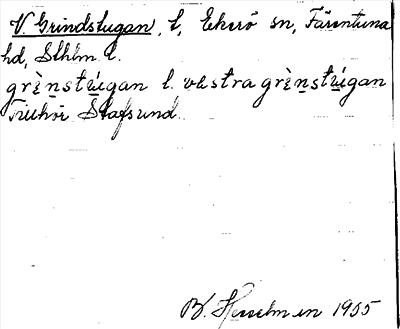 V. Grindstugan, l, Ekerö sn, Färentuna
hd, Sthlm l.
grὲnstúgan l. västra grὲnstúgan
Tillhör Stafsund.
B. Hesselman 1935